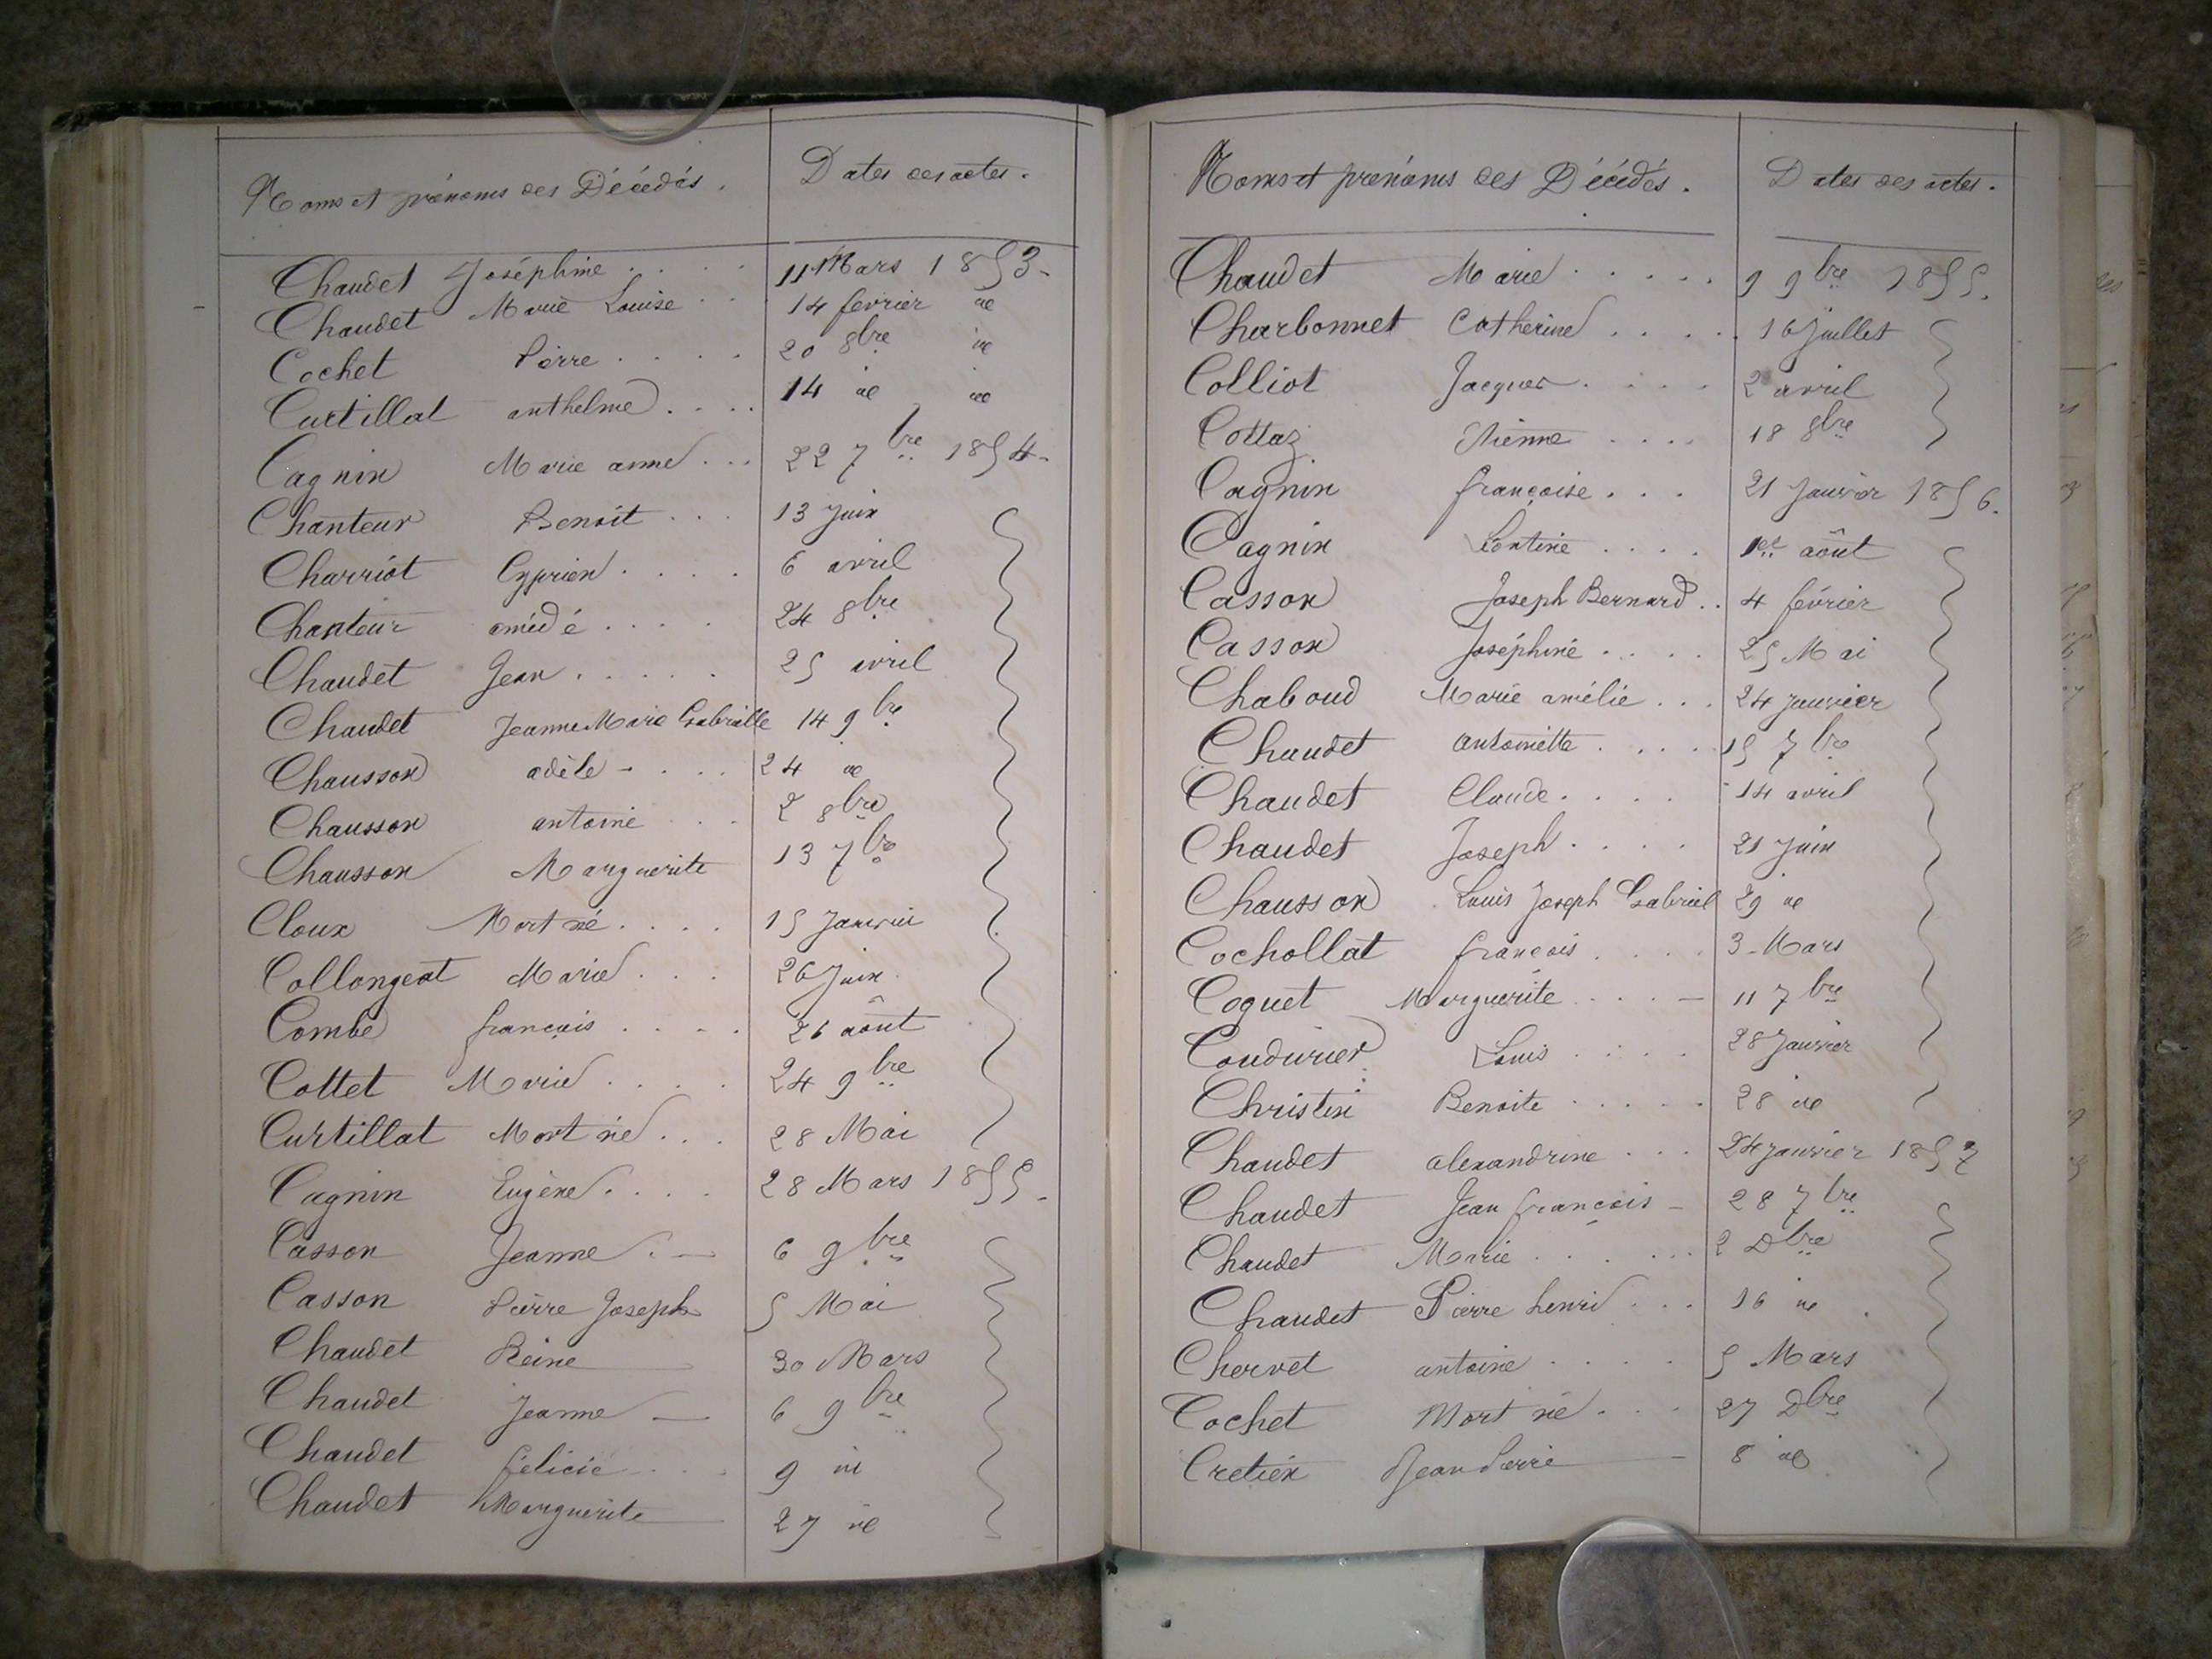 Noms et prénoms des Décédés. Dates des actes.
Chaudet Joséphine .... 11 Mars 1853.
Chaudet Marie Louise .. 14 février id
Cochet Pierre .... 20 8bre id
Curtillat anthelme .... 14 id id
Cagnin Marie anne ... 22 7bre 1854.
Chanteur Benoit ... 13 Juin
Charriot Cyprien .... 6 avril
Chanteur amédé .... 24 8bre
Chaudet Jean ..... 25 avril
Chaudet Jeanne Marie Gabrielle 14 9bre
Chausson adèle - .... 24 id
Chausson antoine ... 2 8bre
Chausson Marguerite 13 7bre
Cloux Mort né .... 15 Janvier
Collongeat Marie ... 26 Juin
Combe françois .... 26 août
Cottet Marie .... 24 9bre
Curtillat Mort né ... 28 Mai
Cagnin Eugène .... 28 Mars 1855.
Casson Jeanne . — 6 9bre
Casson Pierre Joseph 5 Mai
Chaudet Reine — 30 Mars
Chaudet Jeanne — 6 9bre
Chaudet félicie ... 9 id
Chaudet Marguerite — 27 id
Noms et prénoms des Décédés. Dates des actes.
Chaudet Marie ..... 9 9bre 1855.
Charbonnet Catherine .... 16 Juillet
Colliot Jacques .... 2 avril
Cottaz .... 18 8bre
Cagnin françoise ... 21 Janvier 1856.
Cagnin Léontine .... 1er août
Casson Joseph Bernard .. 4 février
Casson Joséphine .... 25 Mai
Chaboud Marie amélie ... 24 janvier
Chaudet antoinette .... 15 7bre
Chaudet Claude .... 14 avril
Chaudet Joseph .... 21 Juin
Chausson Louis Joseph Gabriel 29 id
Cochollat françois .... 3 - Mars
Coquet Marguerite .... — 11 7bre
Coudurier Louis .... 28 Janvier
Christin Benoite ..... 28 id
Chaudet alexandrine ... 24 janvier 1857
Chaudet Jean françois - 28 7bre
Chaudet Marie ..... 2 Dbre
Chaudet Pierre henri ... 16 id
Chervet antoine .... 5 Mars
Cochet Mort né ... 27 Dbre
Cretien Jean Pierre — 8 id